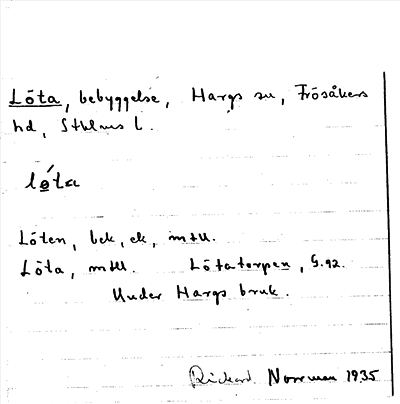 Löta, bebyggelse, Hargs sn, Frösåkers
hd, Sthlms l.
lö́ta
Löten, bek, ek, mtll.
Löta, mtll. Lötatorpen, G.92.
Under Hargs bruk.
Rickard Norrman 1935